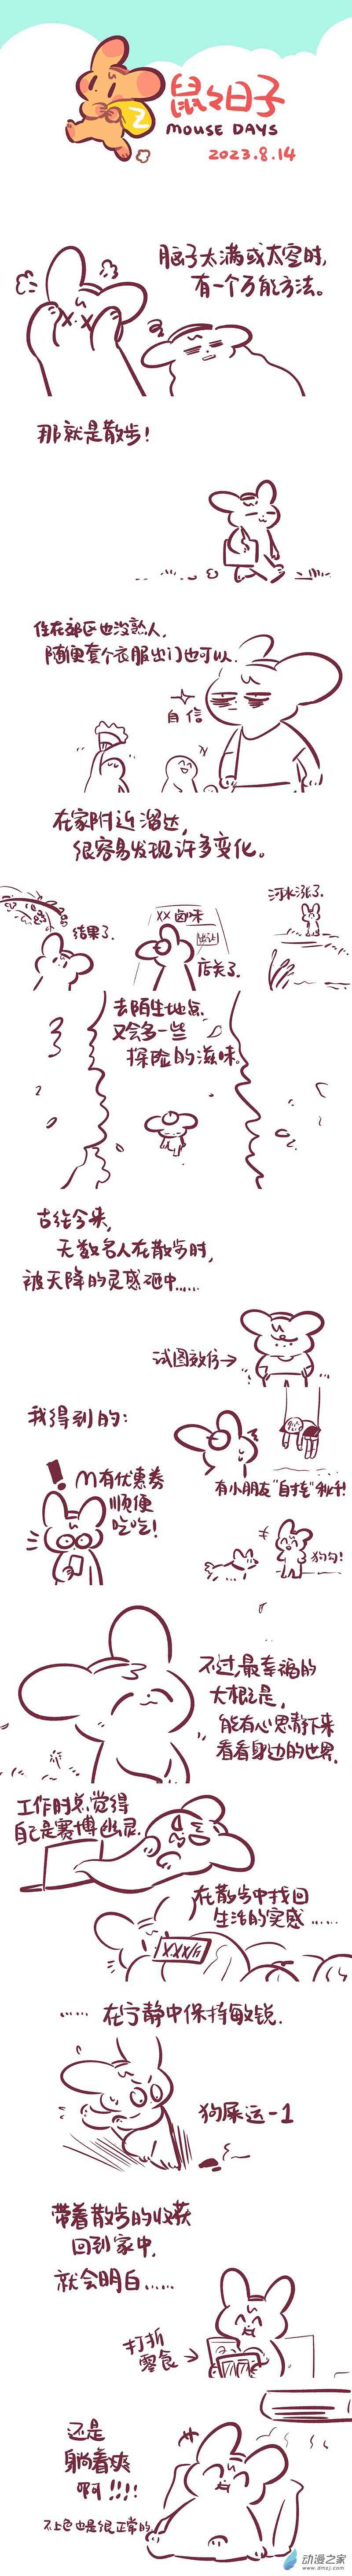 鼠鼠日子
MOUSE DAYS
2023.8.14
脑子太满或太空时,
有一个万能方法。
那就是散步!
住在郊区也没熟人,
随便套个衣服出门也可以.
自信
在家附近溜达,
很容易发现许多变化。
结果了.
XX 卤味
出让
店关了.
河水涨了.
去陌生地点
又会多一些
探险的滋味。
古往今来,
无数名人在散步时,
被天降的灵感砸中......
试图效仿→
我得到的:
M有优惠券
顺便
吃吃!
有小朋友"自挂"秋千!
狗勾!
不过,最幸福的
大概是,
能有心思静下来
看看身边的世界.
工作时总觉得
自己是赛博幽灵.
在散步中找回
生活的实感......
X.XX/斤
......在宁静中保持敏锐.
狗屎运-1
带着散步的收获
回到家中,
就会明白......
打折
零食→
还是
躺着爽
啊!!!!
不上色也是很正常的
动漫之家
www.dmzj.com